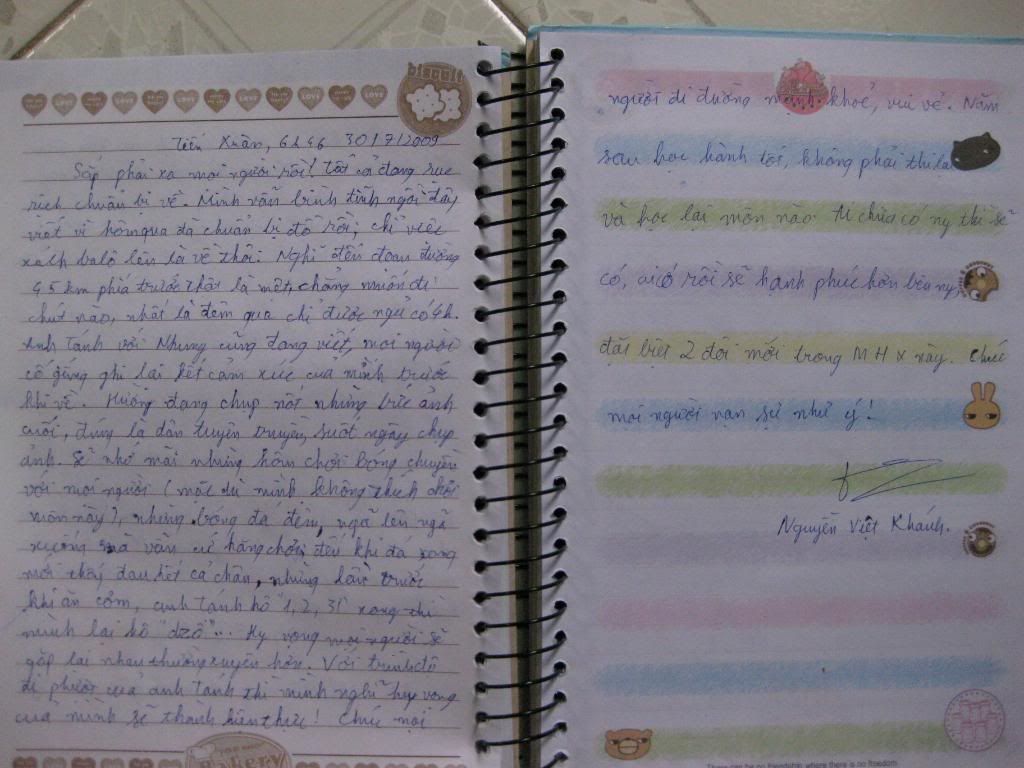 biscuit
LOVE LOVE LOVE LOVE LOVE
Tiến Xuân, 6h46 30/7/2009
Sắp phải xa mọi người rồi! Tất cả đang rục
rịch chuẩn bị về. Mình vẫn bình tĩnh ngồi đây
viết vì hôm qua đã chuẩn bị đồ rồi, chỉ việc
xách balô lên là về thôi. Nghĩ đến đoạn đường
45 km phía trước thật là mệt, chẳng muốn đi
chút nào, nhất là đêm qua chỉ được ngủ có 4h.
Anh Tánh với Nhung cũng đang viết, mọi người
cố gắng ghi lại hết cảm xúc của mình trước
khi về. Hường đang chụp nốt những bức ảnh
cuối, đúng là dân tuyên truyền, suốt ngày chụp
ảnh. Sẽ nhớ mãi những hôm chơi bóng chuyền
với mọi người (mặc dù mình không thích chơi
môn này), những bóng đá đêm, ngã lên ngã
xuống mà vẫn cứ hăng chơi đến khi đá xong
mới thấy đau hết cả chân, những lần trước
khi ăn cơm, anh Tánh hô "1, 2, 3!" xong thì
mình lại hô "dzô"... Hy vọng mọi người sẽ
gặp lại nhau thường xuyên hơn. Với trình độ
đi phượt của anh Tánh thì mình nghĩ hy vọng
của mình sẽ thành hiện thực! Chúc mọi
Bakery
người đi đường mạnh khoẻ, vui vẻ. Năm
sau học hành tốt, không phải thi lại
và học lại môn nào. Ai chưa có ny thì sẽ
có, ai có rồi sẽ hạnh phúc hơn bên ny,
đặc biệt 2 đôi mới trong MHX này. Chúc
mọi người vạn sự như ý!
Nguyễn Việt Khánh.
There can be no friendship where there is no freedom